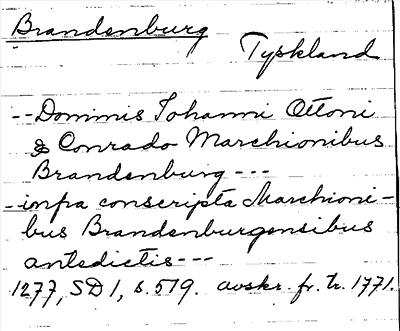 Brandenburg
Tyskland
--Dominis Johanni Ottoni
& Conrado Marchionibus
Brandenburg ---
-infra conscripta Marchioni-
bus Brandenburgensibus
antedictis---
1277, SD 1, s. 519. avskr. fr. tr. 1771.